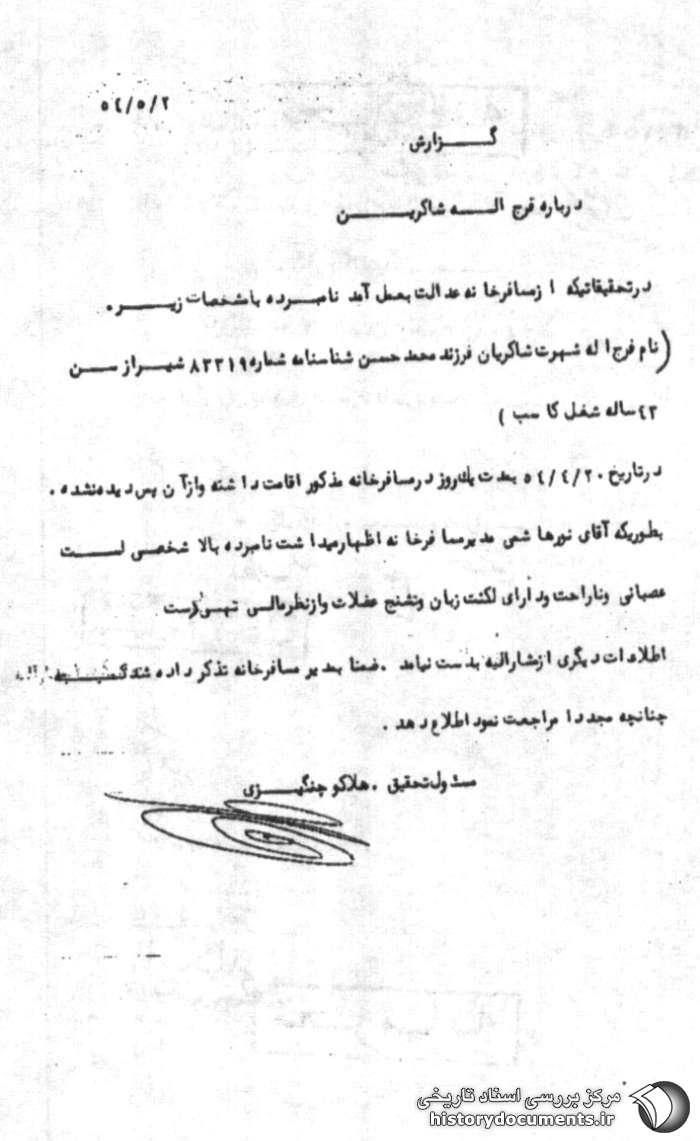 ۵٤/۵/۲
گزارش
درباره فرج اله شاکرین
درتحقیقاتیکه ازمسافرخانه عدالت بعمل آمد نامبرده بامشخصات زیر .
(نام فرج اله شهرت شاکریان فرزند محمد حسن شناسنامه شماره ۸۳۳۱۹ شیراز سن
٤۳ ساله شغل کاسب )
درتاریخ ۵٤/٤/۲۰ بمدت یکروز درمسافرخانه مذکور اقامت داشته وازآن پس دیده نشده .
بطوریکه آقای نورهاشمی مدیرمسافرخانه اظهارمیداشت نامبرده بالا شخصی است
عصبانی وناراحت ودارای لکنت زبان وتشنج عضلات وازنظرمالی تهی دست
اطلاعات دیگری ازمشارالیه بدست نیامد . ضمنا بمدیر مسافرخانه تذکر داده شد که
چنانچه مجددا مراجعت نمود اطلاع دهد .
مسئول تحقیق . هلاکو چنگیزی
مرکز بررسی اسناد تاریخی
historydocuments.ir